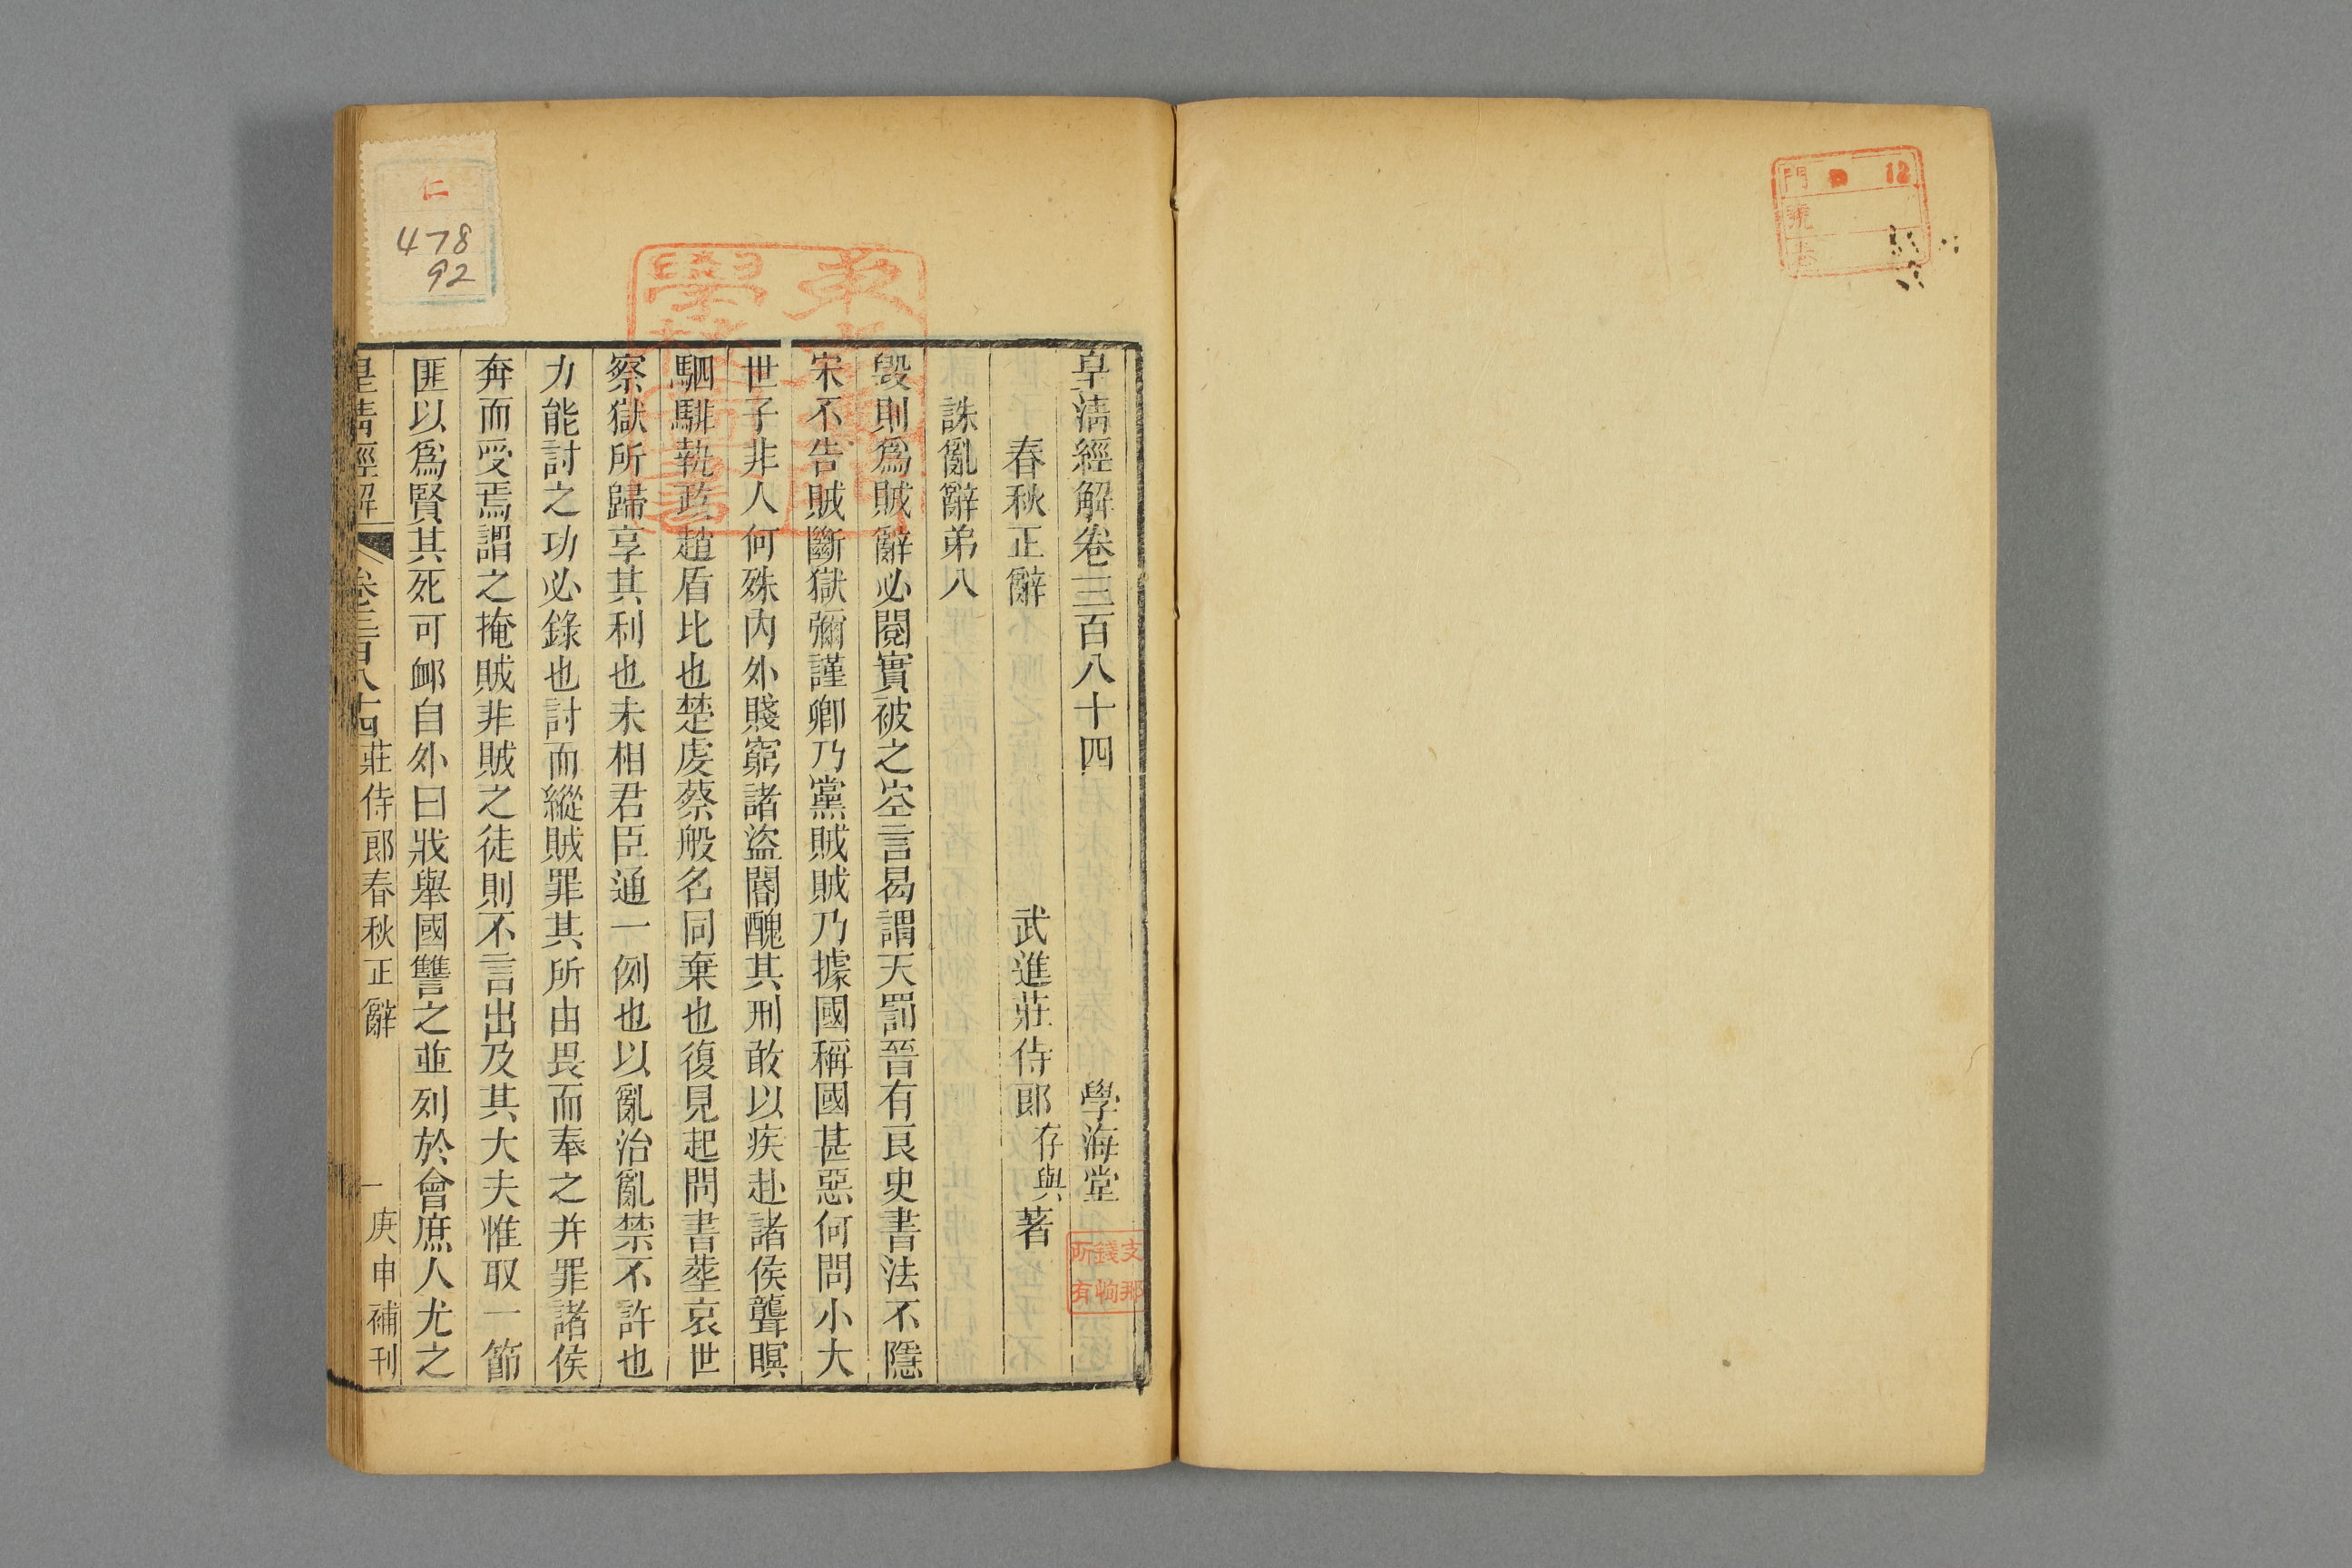 皇清經解卷三百八十四 學海堂
春秋正辭 武進莊侍郎存與著
誅亂辭弟八
毀則爲賊辭必閱實被之空言曷謂天罰晉有良史書法不隱
宋不告賊斷獄彌謹卿乃黨賊賊乃據國稱國甚惡何問小大
世子非人何殊內外賤窮諸盜閽醜其刑敢以疾赴諸侯聾瞑
駟騑執政趙盾比也楚虔蔡般名同棄也復見起問書葬哀世
察獄所歸享其利也未相君臣通一例也以亂治亂禁不許也
力能討之功必錄也討而縱賊罪其所由畏而奉之并罪諸侯
奔而受焉謂之掩賊非賊之徒則不言出及其大夫惟取一節
匪以爲賢其死可衈自外曰戕舉國讐之並列於會庶人尤之
皇清經解 卷三百八十四 莊侍郎春秋正辭 一 庚申補刊
仁
478
92
門 12
號
支那
錢恂
所有